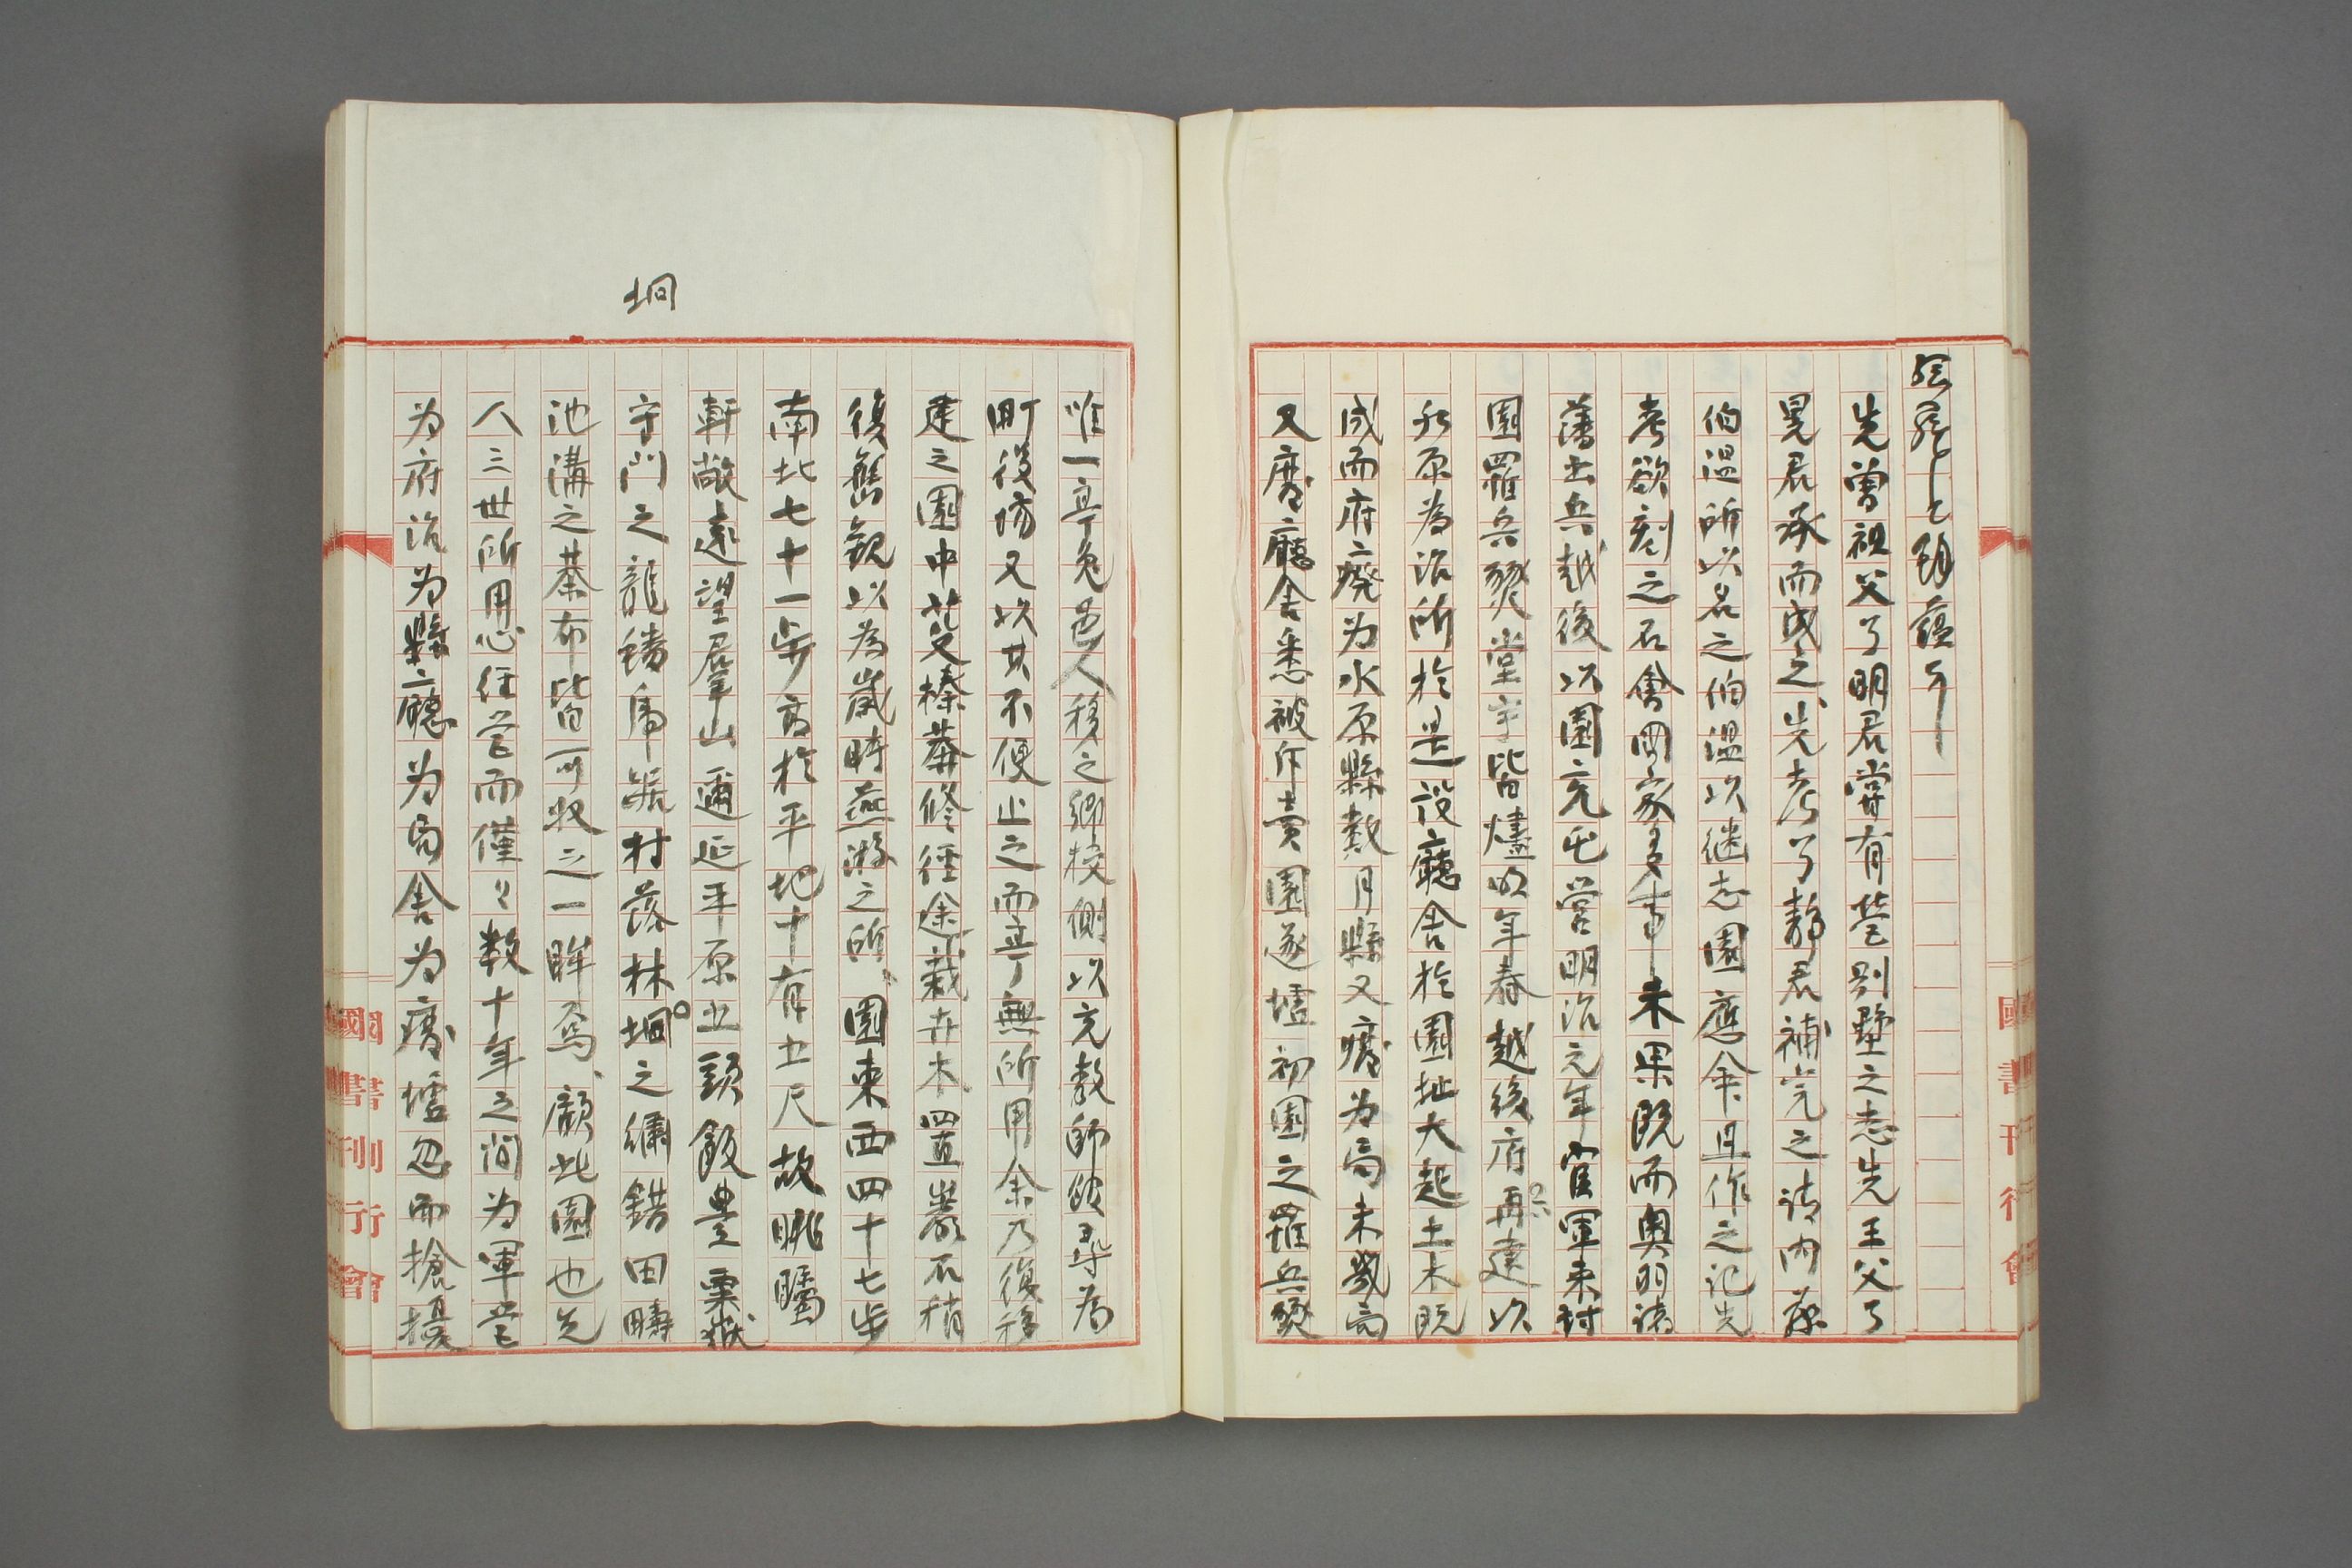 先曾祖父了明君嘗有營別墅之志先王父了
晃君承而成之先考了靜君補完之請内藤
伯温所以名之伯温以継志園應余且作之記先
考欲刻之石會國家多事未果既而奥羽諸
藩出兵越後以園充屯営明治元年官軍来討
園罹兵燹堂宇皆燼明年春越後府再建以
水原為治所於是設廳舎於園址大起土木既
成而府廃为水原縣数月縣又廃为局未幾局
又廃廳舎悉被斥賣園遂墟初園之罹兵燹
唯一亭免邑人移之郷校側以充教師後為
町役場又以其不便止之而亭無所用余乃復移
建之園中芟榛莽修径途栽卉木置巌石稍
復舊観以為歳時燕游之所園東西四十七歩
南北七十一歩高於平地十有五尺故眺矚
軒敞遠望羣山邐延平原出諸飯豊粟嶽
守門之龍蟠虎踞村落林垌之繡錯田疇
池溝之棊布皆可収之一眸焉顧此園也先
人三世所用心経営而僅々数十年之间为軍営
为府治为縣廳为局舎为廃墟忽而搶擾
垌
國書刊行會
國書刊行會